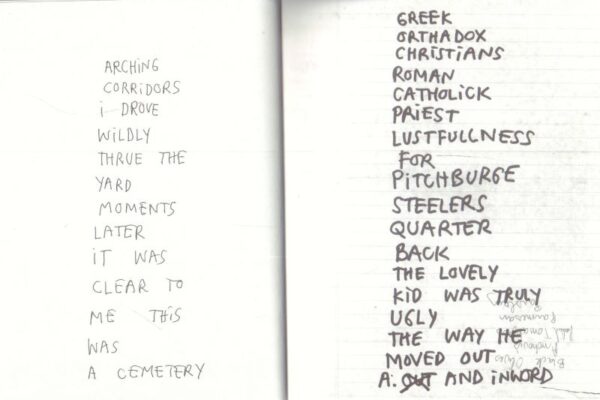 ARCHING
CORRIDORS
i DROVE
WiLDLY
THRUE THE
YARD
MOMENTS
LATER
iT WAS
CLEAR TO
ME THiS
WAS
A CEMETERY
GREEK
ORTHADOX
CHRiSTiANS
ROMAN
CATHOLiCK
PRiEST
LUSTFULLNESS
FOR
PiTCHBURGE
STEELERS
QUARTER
BACK
THE LOVELY
KiD WAS TRULY
UGLY
THE WAY HE
MOVED OUT
A. OUT AND iNWORD